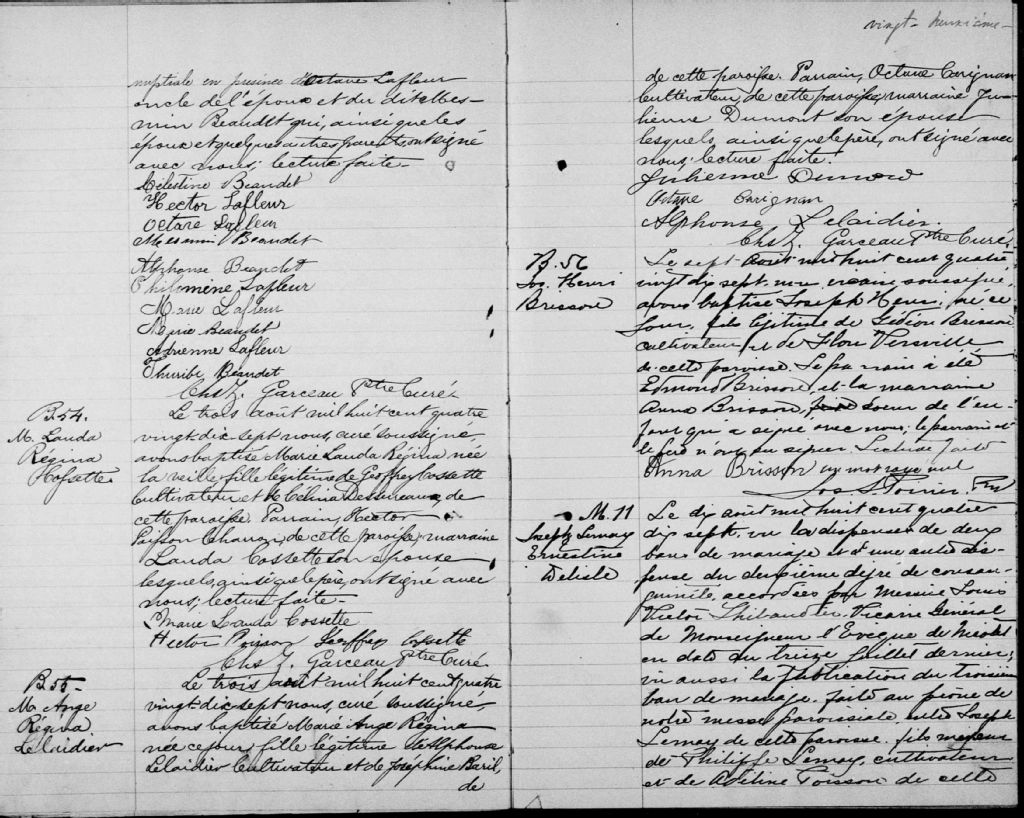 nuptiale en presence d'Octave Lafleur
oncle de l'époux et du dit Mes-
min Beaudet qui, ainsi que les
époux et quelques autres parents, ont signé
avec nous; lecture faite-
Célestine Beaudet
Hector Lafleur
Octave Lafleur
Mesmin Beaudet
Alphonse Beaudet
Philomène Lafleur
Marie Lafleur
Marie Beaudet
Adrienne Lafleur
Thuribe Beaudet
Chs Z. Garceau Ptre Curé
B. 54.
M. Lauda
Régina
Cossette
Le trois août mil huit cent quatre
vingt dix-sept nous, curé soussigné,
avons baptisé Marie Lauda Régina née
la veille, fille légitime de Geoffrey Cossette
Cultivateur et de Célina Desrureaux, de
cette paroisse. Parrain, Hector
Poisson de cette paroisse, marraine
Lauda Cossette son épouse
lesquels, ainsi que le père, ont signé avec
nous; lecture faite-
Marie Lauda Cossette
Hector Poisson Geoffrey Cossette
Chs Z. Garceau Ptre Curé
B. 55-
M. Ange
Régina
Lelaidier
Le trois août mil huit cent quatre
vingt dix sept nous, curé soussigné,
avons baptisé Marie Ange Régina
née ce jour, fille légitime de Alphonse
Lelaidier Cultivateur et de Josephine Baril,
de
vingt- deuxième-
de cette paroisse. Parrain, Octave Carignan
Cultivateur de cette paroisse, marraine Ju-
lienne Dumont son épouse
lesquels, ainsi que le père, ont signé avec
nous; lecture faite.
Julienne Dumont
Octave Carignan
Alphonse Lelaidier
Chs Z. Garceau Ptre Curé.
B. 56
Jos. Henri
Brisson
Le sept Août mil huit cent quatre
vingt dix sept nous vicaire soussigné,
avons baptisé Joseph Henri, né ce
jour, fils légitime de Gédéon Brisson
cultivateur et de Flore
de cette paroisse. Le parrain a été
Edmond Brisson, et la marraine
Anna Brisson, soeur de l'en-
fant qui a signé avec nous; le parrain et
le père n'ont su signer. Lecture faite
Anna Brisson un mot rayé nul
Jos. S. Poirier. Ptre
M. 11
Joseph Lemay
Ernestine
Delisle
Le dix août mil huit cent quatre
dix sept, vu la dispense de deux
bans de mariage et d'une autre dis-
pense du deuxième degré de consan-
guinité, accordées par Messire Louis
Victor Thibaudier Vicaire Général
de Monseigneur l'Evêque de Nicolet
en date du treize Juillet dernier;
vu aussi la publication du troisième
ban de mariage faite au prône de
notre messe paroissiale entre Joseph
Lemay de cette paroisse, fils majeur
de Philippe Lemay, cultivateur
et de Adéline Poisson de cette